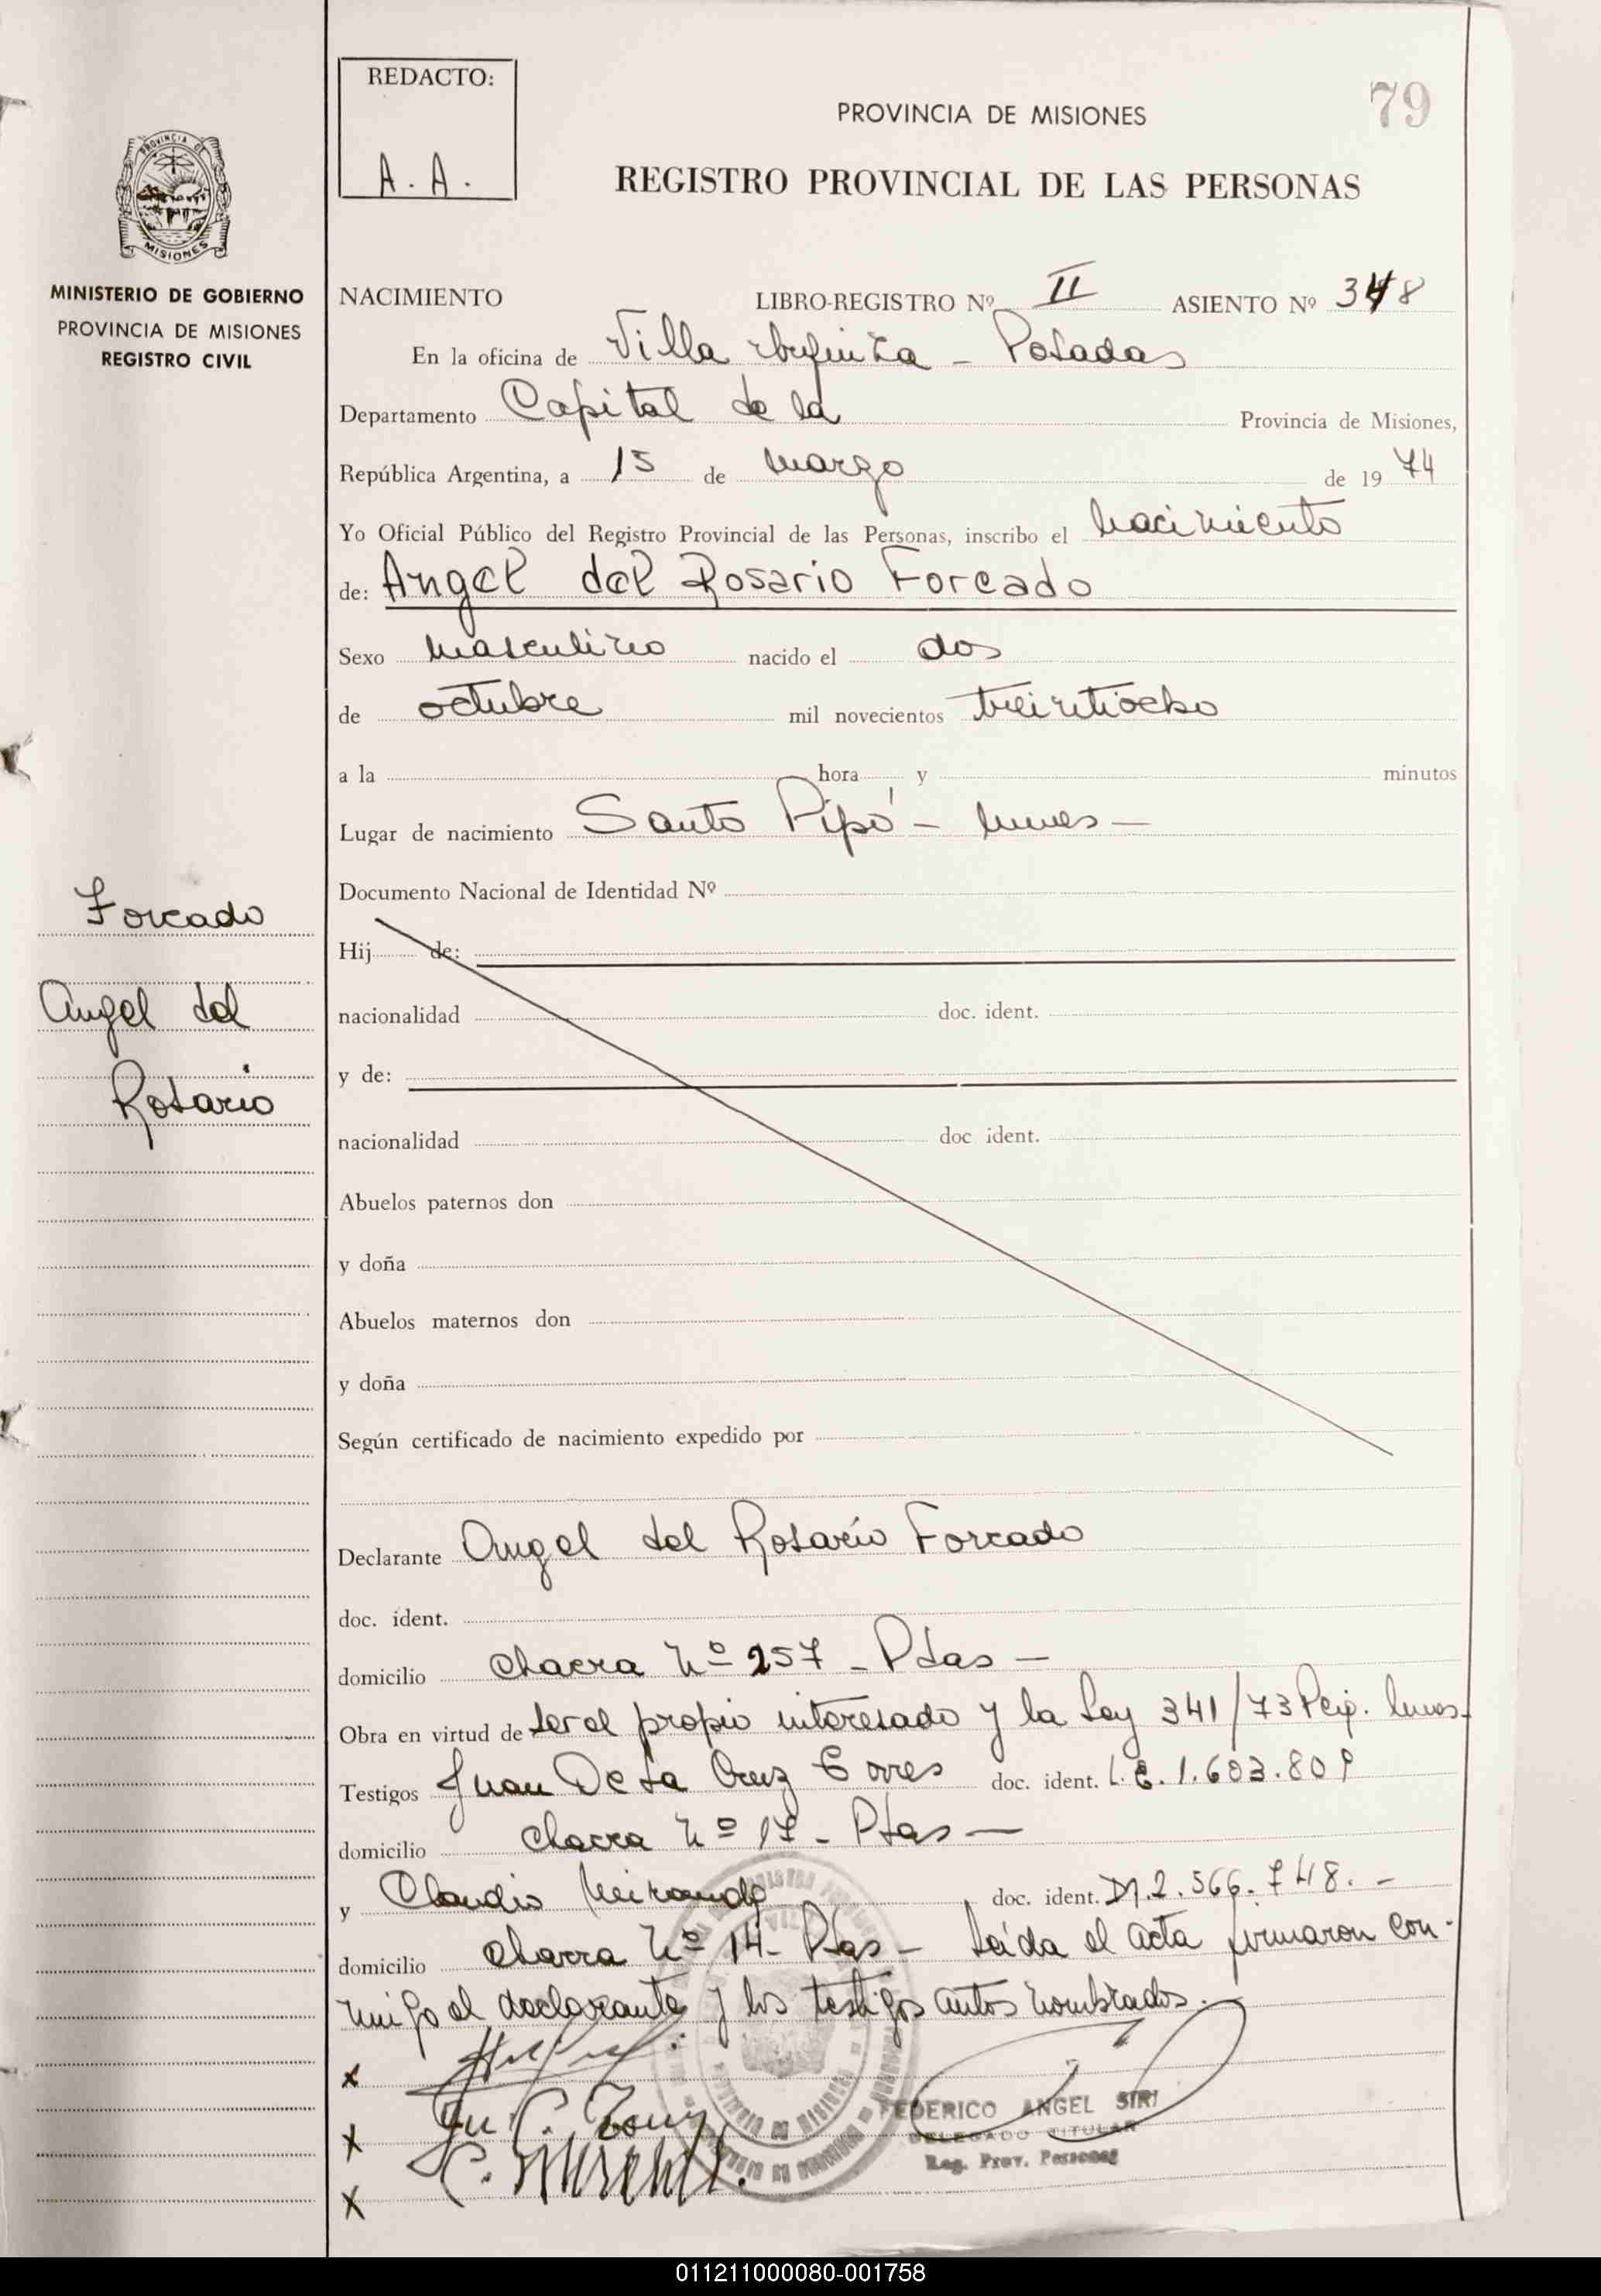 REDACTO:
A. A.
79
PROVINCIA DE MISIONES
REGISTRO PROVINCIAL DE LAS PERSONAS
PROVINCIA DE
MISIONES
MINISTERIO DE GOBIERNO
PROVINCIA DE MISIONES
REGISTRO CIVIL
NACIMIENTO LIBRO-REGISTRO Nº II ASIENTO Nº 348
En la oficina de Villa Urquiza - Posadas
Departamento Capital de la Provincia de Misiones,
República Argentina, a 15 de marzo de 1974
Yo Oficial Público del Registro Provincial de las Personas, inscribo el nacimiento
de: Angel del Rosario Forcado
Sexo masculino nacido el dos
de octubre mil novecientos treintiocho
a la hora y minutos
Lugar de nacimiento Santo Pipó - Mnes -
Documento Nacional de Identidad Nº
Forcado
Angel del
Rosario
Hij de:
nacionalidad doc. ident.
y de:
nacionalidad doc ident.
Abuelos paternos don
y doña
Abuelos maternos don
y doña
Según certificado de nacimiento expedido por
Declarante Angel del Rosario Forcado
doc. ident.
domicilio Chacra Nº 257 - Pdas -
Obra en virtud de ser el propio interesado y la Ley 341/73 Mnes.
Testigos Juan De La Cruz doc. ident. L.E. 1.603.809
domicilio Chacra Nº 17 - Pdas -
y Claudio Miranda doc. ident. DM. 2.566.748. -
domicilio Chacra Nº 14 - Pdas - Leída el acta firmaron con-
migo el declarante y los testigos antes nombrados.
x
x
x
FEDERICO ANGEL SIRI
DELEGADO TITULAR
Reg. Prov. Personas
011211000080-001758